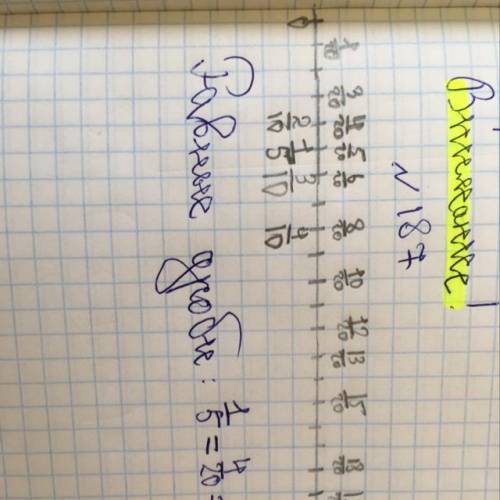 Внимание!
№ 187
1/20 3/20 4/20 5/20 6/20 8/20 10/20 12/20 13/20 15/20 18/20
0 2/10 1/5 3/10 4/10
Равные дроби: 1/5 = 4/20 =